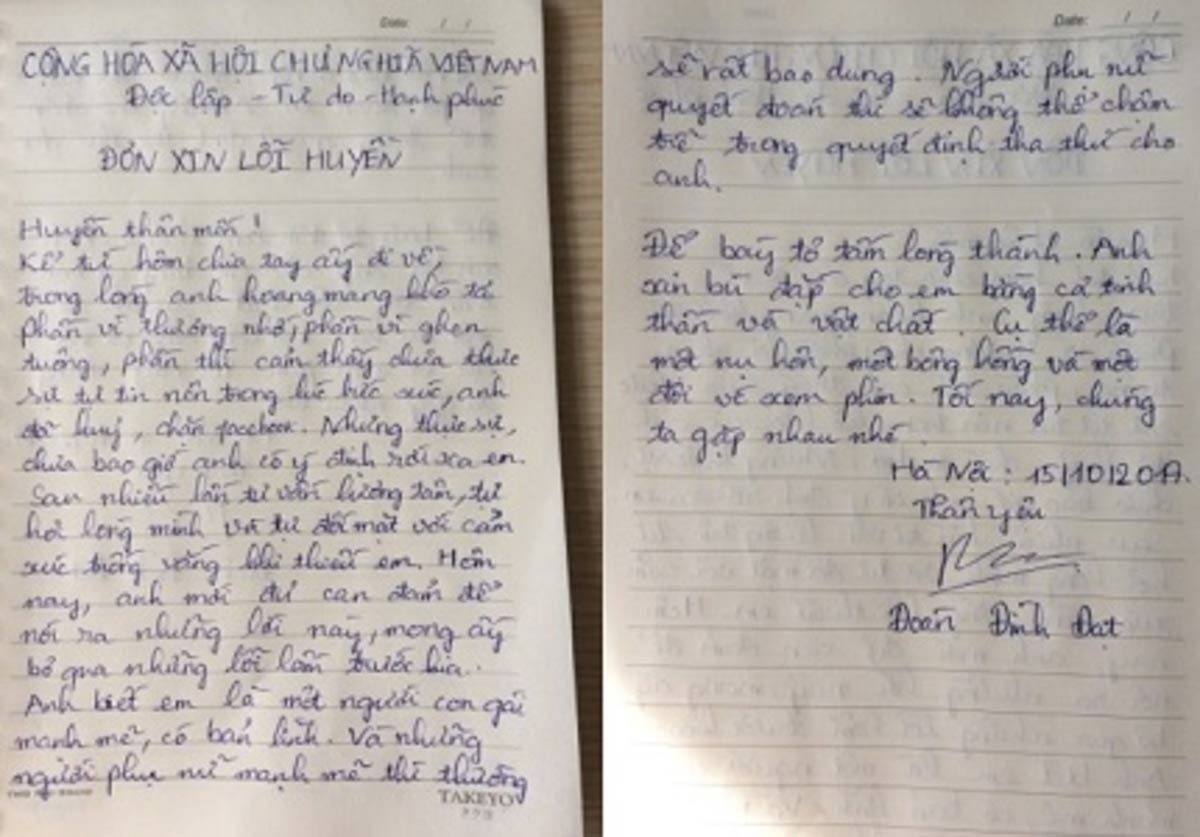 Date: / /
CỘNG HÒA XÃ HỘI CHỦ NGHĨA VIỆT NAM
Độc lập - Tự do - Hạnh phúc
ĐƠN XIN LỖI HUYỀN
Huyền thân mến!
Kể từ hôm chia tay ấy đi về,
trong lòng anh hoang mang khó tả
phần vì thương nhớ, phần vì ghen
tuông, phần thì cảm thấy chưa thực
sự tự tin nên trong lúc bức xúc, anh
đã huỷ, chặn facebook. Nhưng thực sự,
chưa bao giờ anh có ý định rời xa em.
Sau nhiều lần tự vấn lương tâm, tự
hỏi lòng mình và tự đối mặt với cảm
xúc trống vắng khi thiếu em. Hôm
nay, anh mới đủ can đảm để
nói ra những lời này, mong ấy
bỏ qua những lỗi lầm trước kia.
Anh biết em là một người con gái
mạnh mẽ, có bản lĩnh. Và những
người phụ nữ mạnh mẽ thì thường
TAKEYO
Date: / /
sẽ rất bao dung. Người phụ nữ
quyết đoán thì sẽ không thể chậm
trễ trong quyết định tha thứ cho
anh.
Để bày tỏ tấm lòng thành. Anh
xin bù đắp cho em bằng cả tinh
thần và vật chất. Cụ thể là
một nụ hôn, một bông hồng và một
đôi vé xem phim. Tối nay, chúng
ta gặp nhau nhé.
Hà Nội: 15/10/2017.
Thân yêu
Đoàn Đình Đạt